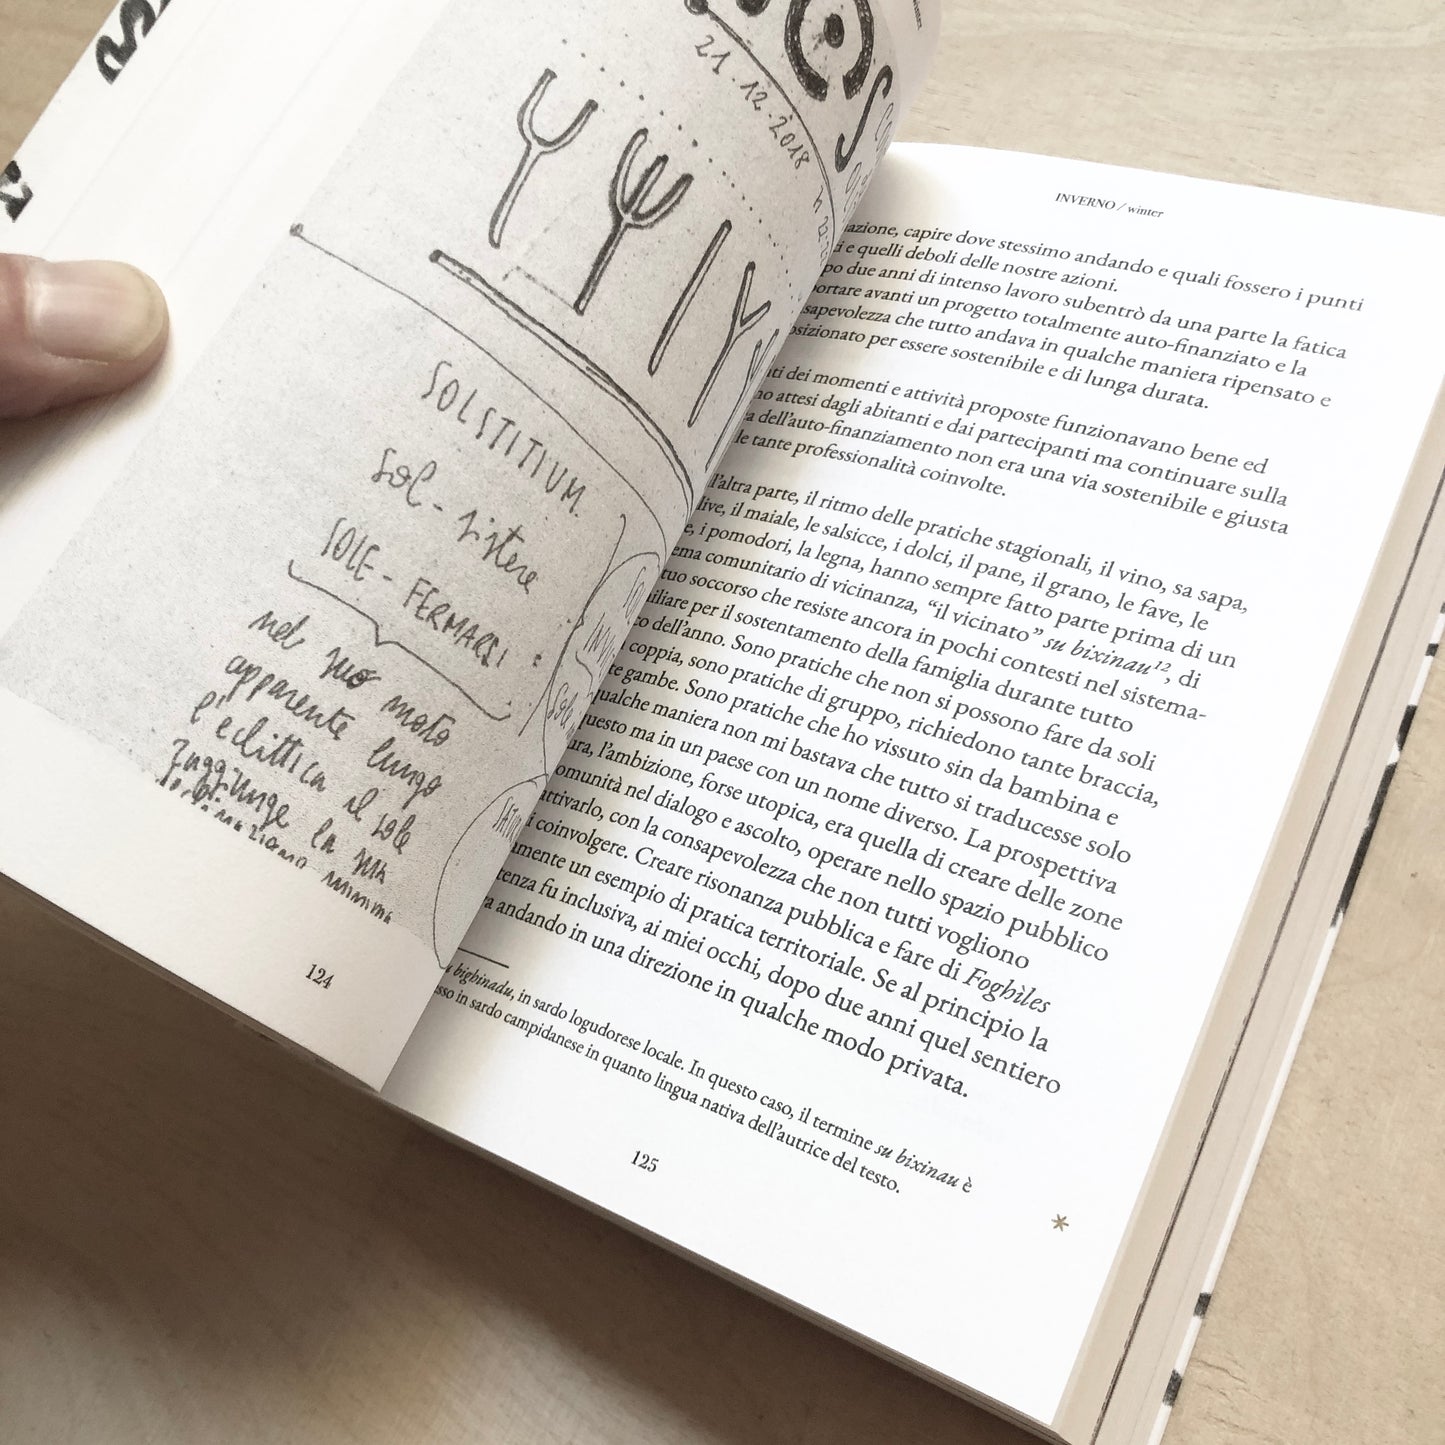 21.12.2018
SOLSTITIUM.
sol - sistere
SOLE - FERMARSI:
nel suo moto
apparente lungo
l'eclittica il sole
raggiunge la sua
declinazione minima
124
INVERNO / winter
capire dove stessimo andando e quali fossero i punti
e quelli deboli delle nostre azioni.
due anni di intenso lavoro subentrò da una parte la fatica
portare avanti un progetto totalmente auto-finanziato e la
che tutto andava in qualche maniera ripensato e
per essere sostenibile e di lunga durata.
dei momenti e attività proposte funzionavano bene ed
attesi dagli abitanti e dai partecipanti ma continuare sulla
dell'auto-finanziamento non era una via sostenibile e giusta
le tante professionalità coinvolte.
l'altra parte, il ritmo delle pratiche stagionali, il vino, sa sapa,
il maiale, le salsicce, i dolci, il pane, il grano, le fave, le
i pomodori, la legna, hanno sempre fatto parte prima di un
comunitario di vicinanza, “il vicinato” su bixinau¹², di
soccorso che resiste ancora in pochi contesti nel sistema-
per il sostentamento della famiglia durante tutto
dell'anno. Sono pratiche che non si possono fare da soli
coppia, sono pratiche di gruppo, richiedono tante braccia,
gambe. Sono pratiche che ho vissuto sin da bambina e
qualche maniera non mi bastava che tutto si traducesse solo
questo ma in un paese con un nome diverso. La prospettiva
l'ambizione, forse utopica, era quella di creare delle zone
comunità nel dialogo e ascolto, operare nello spazio pubblico
attivarlo, con la consapevolezza che non tutti vogliono
coinvolgere. Creare risonanza pubblica e fare di Foghìles
un esempio di pratica territoriale. Se al principio la
fu inclusiva, ai miei occhi, dopo due anni quel sentiero
andando in una direzione in qualche modo privata.
bighinadu, in sardo logudorese locale. In questo caso, il termine su bixinau è
in sardo campidanese in quanto lingua nativa dell'autrice del testo.
125
*